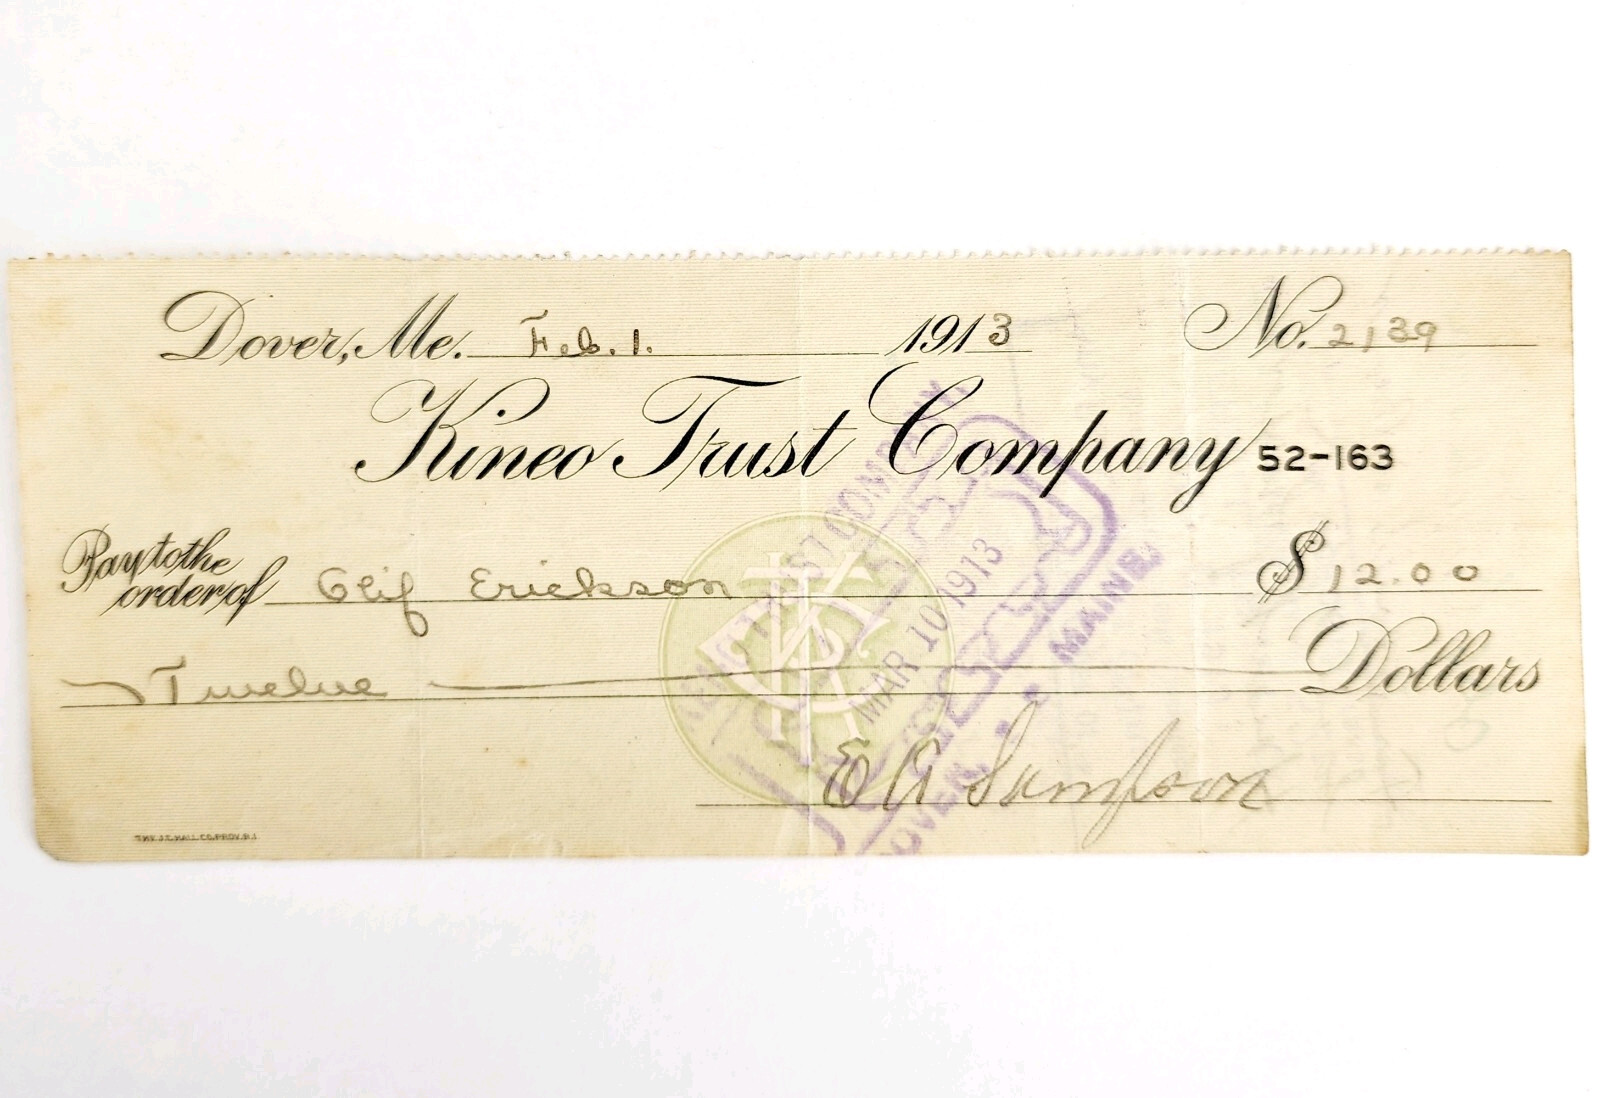 Dover, Me. Feb. 1. 1913 No. 2139
Kineo Trust Company 52-163
Pay to the
order of Olif Erickson $ 12.00
Twelve Dollars
E A Sampson
THE J.C. HALL CO. PROV. R.I.
KTC
KINEO TRUST COMPANY
PAID
MAR 10 1913
DOVER, MAINE